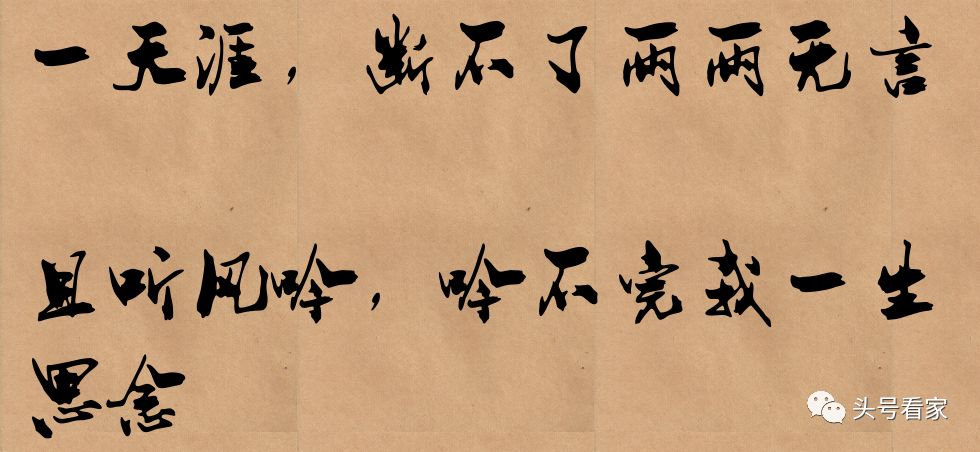 一天涯，断不了两两无言
且听风吟，吟不完我一生
思念
头号看家